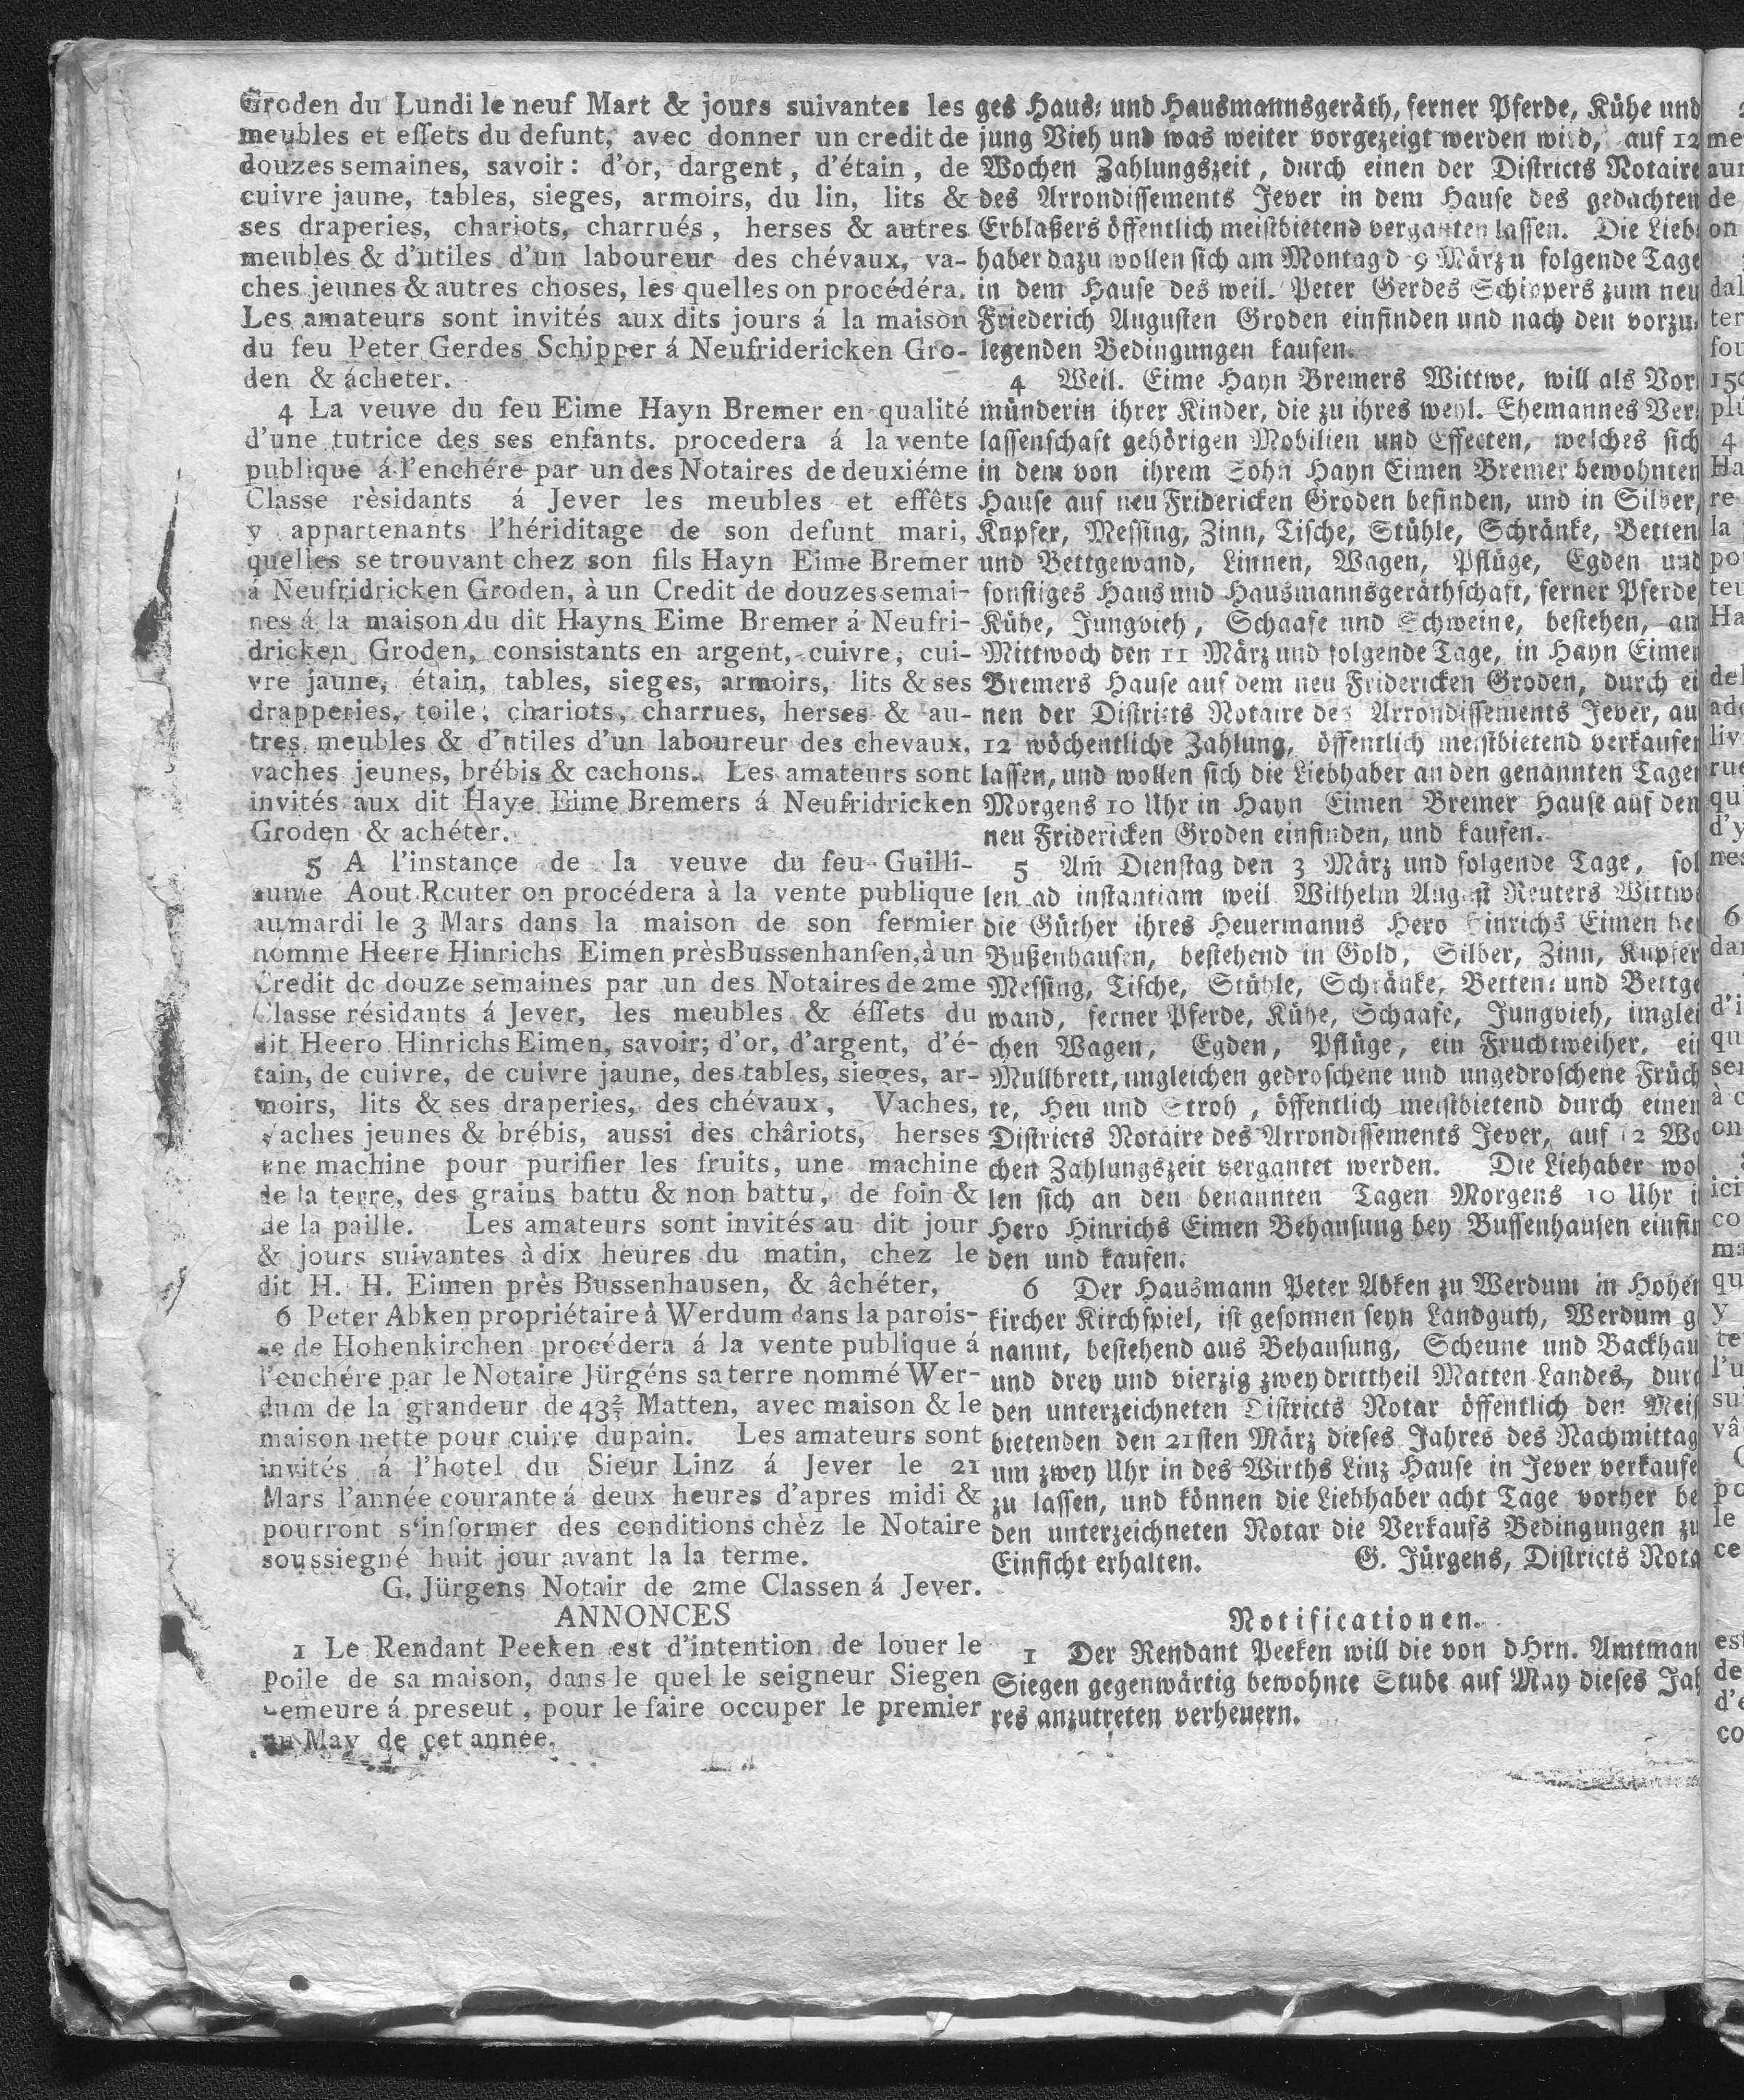 Groden du Lundi le neuf Mart & jours suivantes les
meubles et effets du defunt, avec donner un credit de
douzes semaines, savoir: d'or, dargent, d'étain, de
cuivre jaune, tables, sieges, armoirs, du lin, lits &
ses draperies, chariots, charrués, herses & autres
meubles & d'utiles d'un laboureur des chévaux, va-
ches jeunes & autres choses, les quelles on procédéra.
Les amateurs sont invités aux dits jours á la maison
du feu Peter Gerdes Schipper á Neufridericken Gro-
den & ácheter.
4 La veuve du feu Eime Hayn Bremer en qualité
d'une tutrice des ses enfants. procedera á la vente
publique á l'enchére par un des Notaires de deuxiéme
Classe rèsidants á Jever les meubles et effêts
y appartenants l'hériditage de son defunt mari,
quelles se trouvant chez son fils Hayn Eime Bremer
á Neufridricken Groden, à un Credit de douzes semai-
nes á la maison du dit Hayns Eime Bremer á Neufri-
dricken Groden, consistants en argent, cuivre, cui-
vre jaune, étain, tables, sieges, armoirs, lits & ses
drapperies, toile, chariots, charrues, herses & au-
tres meubles & d'utiles d'un laboureur des chevaux,
vaches jeunes, brébis & cachons. Les amateurs sont
invités aux dit Haye Eime Bremers á Neufridricken
Groden & achéter.
5 A l'instance de la veuve du feu Guilli-
aume Aout Rcuter on procédera à la vente publique
au mardi le 3 Mars dans la maison de son fermier
nommé Heere Hinrichs Eimen près Bussenhansen, à un
Credit dc douze semaines par un des Notaires de 2me
Classe résidants á Jever, les meubles & éffets du
dit Heero Hinrichs Eimen, savoir; d'or, d'argent, d'é-
tain, de cuivre, de cuivre jaune, des tables, sieges, ar-
moirs, lits & ses draperies, des chévaux, Vaches,
vaches jeunes & brébis, aussi des châriots, herses
une machine pour purifier les fruits, une machine
de la terre, des grains battu & non battu, de foin &
de la paille. Les amateurs sont invités au dit jour
& jours suivantes à dix heures du matin, chez le
dit H. H. Eimen près Bussenhausen, & âchéter,
6 Peter Abken propriétaire à Werdum dans la parois-
se de Hohenkirchen procédera á la vente publique á
l'enchére par le Notaire Jürgéns sa terre nommé Wer-
dum de la grandeur de 43⅔ Matten, avec maison & le
maison nette pour cuire dupain. Les amateurs sont
invités á l'hotel du Sieur Linz á Jever le 21
Mars l'année courante á deux heures d'apres midi &
pourront s'informer des conditions chèz le Notaire
soussiegné huit jour avant la la terme.
G. Jürgens Notair de 2me Classen á Jever.
ANNONCES
1 Le Rendant Peeken est d'intention de louer le
Poile de sa maison, dans le quel le seigneur Siegen
demeure á preseut, pour le faire occuper le premier
May de cet année.
ges Haus- und Hausmannsgeräth, ferner Pferde, Kühe und
jung Vieh und was weiter vorgezeigt werden wird, auf 12
Wochen Zahlungszeit, durch einen der Districts Notaire
des Arrondissements Jever in dem Hause des gedachten
Erblaßers öffentlich meistbietend verganten lassen. Die Lieb-
haber dazu wollen sich am Montag d 9 März u folgende Tage
in dem Hause des weil. Peter Gerdes Schippers zum neu
Friederich Augusten Groden einfinden und nach den vorzu-
legenden Bedingungen kaufen.
4 Weil. Eime Hayn Bremers Wittwe, will als Vor-
münderin ihrer Kinder, die zu ihres weyl. Ehemannes Ver-
lassenschaft gehörigen Mobilien und Effecten, welches sich
in dem von ihrem Sohn Hayn Eimen Bremer bewohnten
Hause auf neu Fridericken Groden befinden, und in Silber,
Kupfer, Messing, Zinn, Tische, Stühle, Schränke, Betten
und Bettgewand, Linnen, Wagen, Pflüge, Egden und
sonstiges Haus und Hausmannsgeräthschaft, ferner Pferde
Kühe, Jungvieh, Schaafe und Schweine, bestehen, am
Mittwoch den 11 März und folgende Tage, in Hayn Eimen
Bremers Hause auf dem neu Fridericken Groden, durch ei
nen der Districts Notaire des Arrondissements Jever, au
12 wöchentliche Zahlung, öffentlich meistbietend verkaufen
lassen, und wollen sich die Liebhaber an den genannten Tagen
Morgens 10 Uhr in Hayn Eimen Bremer Hause auf den
neu Fridericken Groden einfinden, und kaufen.
5 Am Dienstag den 3 März und folgende Tage, sol
len ad instantiam weil Wilhelm August Reuters Wittwe
die Güther ihres Heuermanns Hero Hinrichs Eimen bey
Bußenhausen, bestehend in Gold, Silber, Zinn, Kupfer
Messing, Tische, Stühle, Schränke, Betten- und Bettge
wand, ferner Pferde, Kühe, Schaafe, Jungvieh, imglei
chen Wagen, Egden, Pflüge, ein Fruchtweiher, ei
Mullbrett, imgleichen gedroschene und ungedroschene Früch
te, Heu und Stroh, öffentlich meistbietend durch einen
Districts Notaire des Arrondissements Jever, auf 12 Wo
chen Zahlungszeit vergantet werden. Die Liehaber wol
len sich an den benannten Tagen Morgens 10 Uhr i
Hero Hinrichs Eimen Behausung bey Bussenhausen einfin
den und kaufen.
6 Der Hausmann Peter Abken zu Werdum in Hohen
kircher Kirchspiel, ist gesonnen seyn Landguth, Werdum g
nannt, bestehend aus Behausung, Scheune und Backhau
und drey und vierzig zwey drittheil Matten Landes, durc
den unterzeichneten Districts Notar öffentlich den Meis
bietenden den 21sten März dieses Jahres des Nachmittag
um zwey Uhr in des Wirths Linz Hause in Jever verkaufe
zu lassen, und können die Liebhaber acht Tage vorher be
den unterzeichneten Notar die Verkaufs Bedingungen zu
Einsicht erhalten. G. Jürgens, Districts Nota
Notificationen.
1 Der Rendant Peeken will die von dHrn. Amtman
Siegen gegenwärtig bewohnte Stube auf May dieses Jah
res anzutreten verheuern.